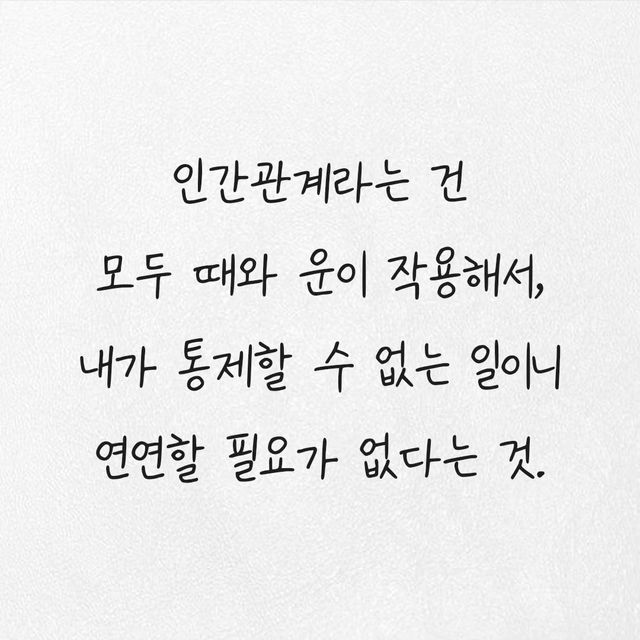 인간관계라는 건
모두 때와 운이 작용해서,
내가 통제할 수 없는 일이니
연연할 필요가 없다는 것.